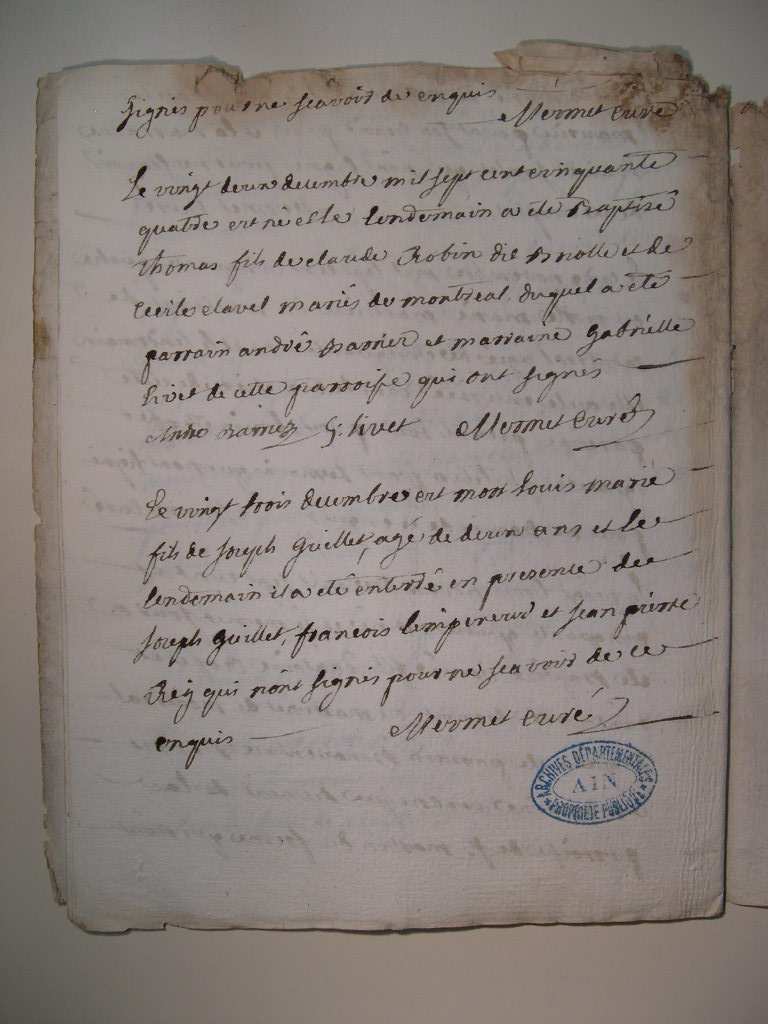 signés pour ne scavoir de enquis Mermet curé
Le vingt deux decembre mil sept cent cinquante
quatre est né et le lendemain a été Baptisé
thomas fils de claude Robin dit Briolle et de
Cecile clavel mariés de montreal, duquel a été
parrain andré Barrier et marraine Gabrielle
livet de cette parroisse qui ont signés
André G: livet Mermet curé
Le vingt trois decembre est mort louis marie
fils de Joseph Guillet, agé de deux ans et le
lendemain il a été enterré en presence de
Joseph Guillet, francois lempereur et Jean pierre
Rey qui n'ont signés pour ne scavoir de ce
enquis Mermet curé
ARCHIVES DÉPARTEMENTALES
AIN
PROPRIÉTÉ PUBLIQUE